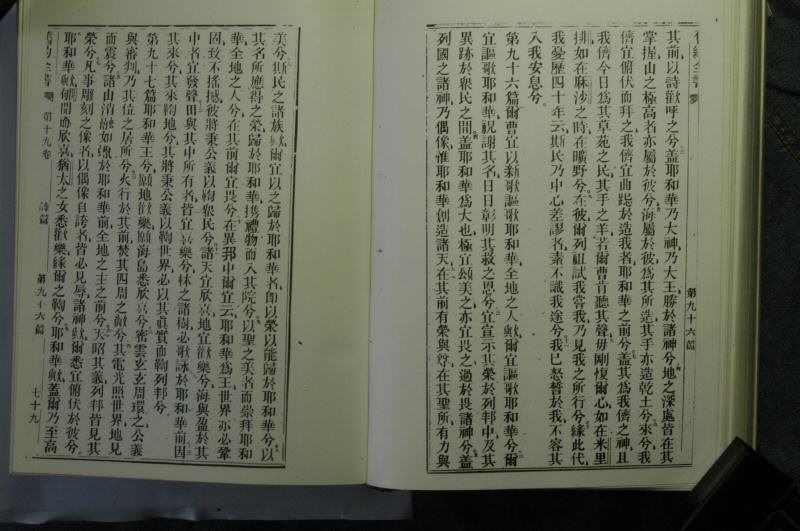 其前以詩歡呼之兮蓋耶和華乃大神乃大王勝於諸神兮地之深處皆在其
掌握山之極高者亦屬於彼兮海屬於彼爲其所造其手亦造乾土兮來兮我
儕宜俯伏而拜之我儕宜曲跽於造我者耶和華之前兮蓋其爲我儕之神且
我儕今日爲其草苑之民其手之羊若爾曹肯聽其聲毋剛愎爾心如在米里
排如在麻沙之時在曠野兮在彼爾列祖試我嘗我乃見我之所行兮緣此代
我憂歷四十年云斯民乃中心差謬者素不識我途兮我已怒誓於我不容其
入我安息兮
第九十六篇爾曹宜以新歌謳歌耶和華全地之人歟爾宜謳歌耶和華兮爾
宜謳歌耶和華祝謝其名日日彰明其救之恩兮宜宣示其榮於列邦中及其
異跡於衆民之間蓋耶和華爲大也極宜頌美之亦宜畏之過於畏諸神兮蓋
列國之諸神乃偶像惟耶和華創造諸天在其前有榮與尊在其聖所有力與
第九十六篇
美兮斯民之諸族歟爾宜以之歸於耶和華者即以榮以能歸於耶和華兮以
其名所應得之榮歸於耶和華携禮物而入其院兮以聖之美者而崇拜耶和
華全地之人兮在其前爾宜畏兮在異邦中爾宜云耶和華爲王世界亦必鞏
固致不搖撼彼將秉公義以鞫衆民兮諸天宜欣喜地宜歡樂兮海與盈於其
中者宜發聲田與其中所有者皆宜喜樂兮林之諸樹必歌詠於耶和華前因
其來兮其來鞫地兮其將秉公義以鞫世界必以其眞實而鞫列邦兮
第九十七篇耶和華王兮願地歡樂願海島悉欣喜兮密雲玄玄周環之公義
與審判乃其位之居所兮火行於其前焚其四周之敵兮其電光照世界地見
而震兮諸山消融如蠟於耶和華前全地之主之前兮天昭其義列邦皆見其
榮兮凡事雕刻之像者以偶像自誇者皆必見辱諸神歟爾悉宜俯伏於彼兮
耶和華歟郇聞而欣喜猶太之女悉歡樂緣爾之鞫兮耶和華歟蓋爾乃至高
第十九卷
詩篇
第九十六篇
七十九